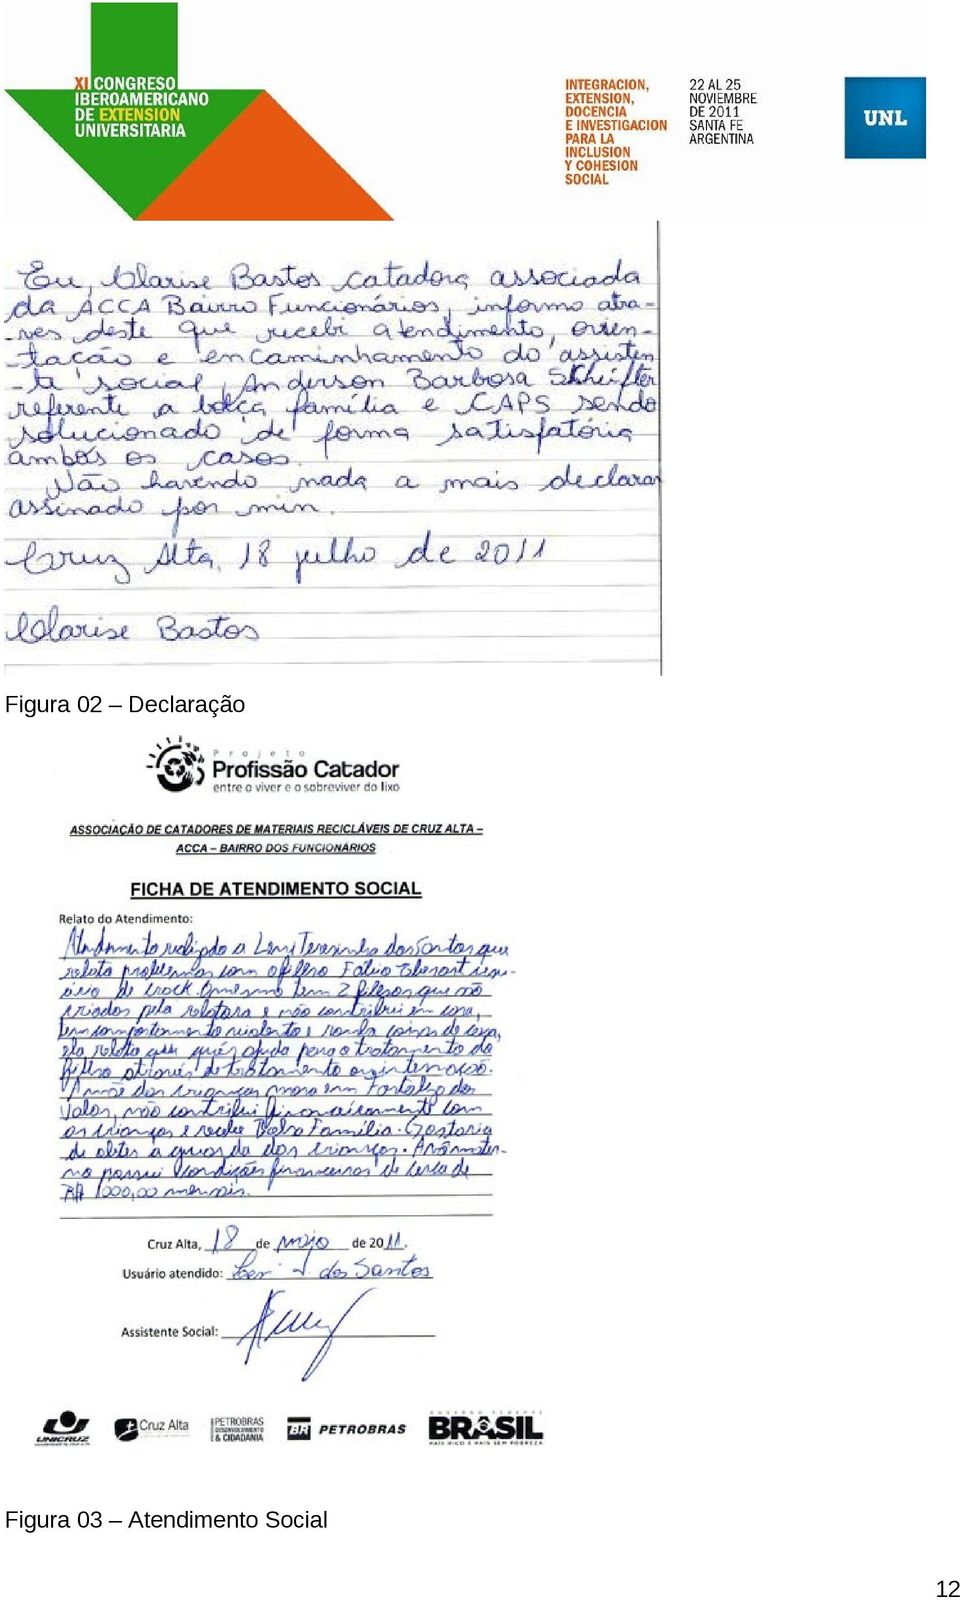 XI CONGRESO
IBEROAMERICANO
DE EXTENSION
UNIVERSITARIA
INTEGRACION,
EXTENSION,
DOCENCIA
E INVESTIGACION
PARA LA
INCLUSION
Y COHESION
SOCIAL
22 AL 25
NOVIEMBRE
DE 2011
SANTA FE
ARGENTINA
UNL
Eu, Clarise Bastos catadora associada
da ACCA Bairro Funcionários, informo atra-
ves deste que recebi atendimento, orien-
tacão e encaminhamento do assisten
-ta social, Anderson Barbosa
referente a bolça família e CAPS sendo
solucionado de forma satisfatória
ambos os casos.
Não havendo nada a mais declarar
assinado por min.
Cruz Alta, 18 julho de 2011
Clarise Bastos
Figura 02 – Declaração
Projeto
Profissão Catador
entre o viver e o sobreviver do lixo
ASSOCIAÇÃO DE CATADORES DE MATERIAIS RECICLÁVEIS DE CRUZ ALTA –
ACCA – BAIRRO DOS FUNCIONÁRIOS
FICHA DE ATENDIMENTO SOCIAL
Relato do Atendimento:
Atendimento realizado a Leni Teresinha dos Santos que
relata problemas com o filho Fabio usu-
ário de crack. O mesmo tem 2 filhos que são
criados pela relatora e não contribui em casa,
tem comportamento violento e rouba coisas de casa,
ela relata que quer ajuda para o tratamento do
filho através de tratamento
A mãe das crianças mora em Fortaleza dos
Valos, não contribui financeiramente com
as crianças e recebe Bolsa Família. Gostaria
de obter a guarda das crianças. A
possui condições financeiras de cerca de
R$ 1000,00 mensais.
Cruz Alta, 18 de maio de 2011.
Usuário atendido: Leni T. dos Santos
Assistente Social:
UNICRUZ
Cruz Alta
PETROBRAS
DESENVOLVIMENTO
& CIDADANIA
BR PETROBRAS
GOVERNO FEDERAL
BRASIL
PAÍS RICO É PAÍS SEM POBREZA
Figura 03 – Atendimento Social
12